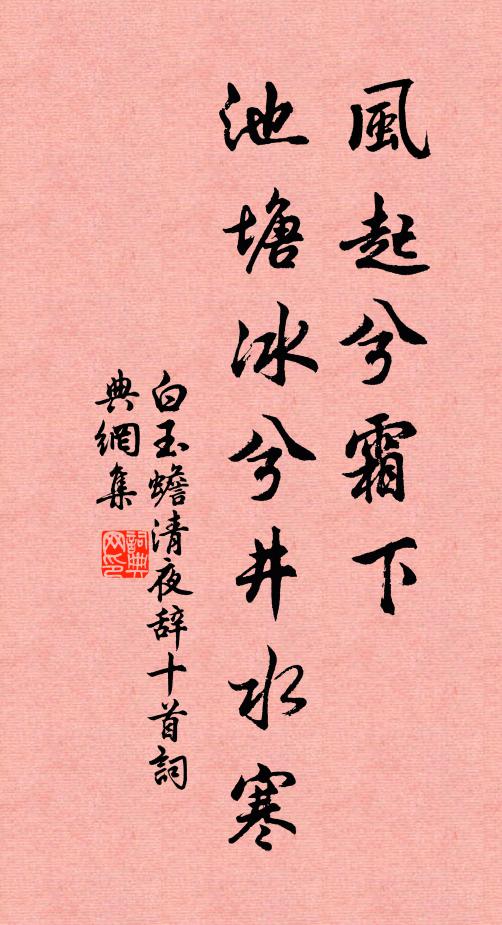 風起兮霜下
池塘冰兮井水寒
白玉蟾清夜辞十首詞
典網集
詞典
网印